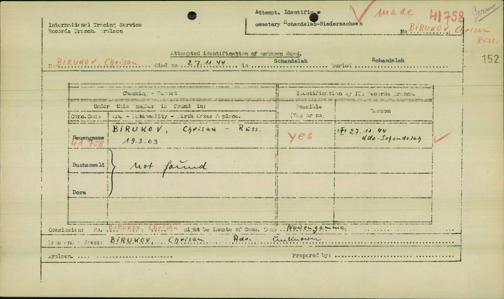 International Tracing Service
Records Branch, Arolsen
Attempt. Identific
cemetery Schandelah-Niedersachsen
made 41758
No BIRUKOV, Chrisan
Russ.
152
Attempted identification of unknown dead.
BIRUKOV, Chrisan died on 27.11.44 in Schandelah buried Schandelah
Under this number is found in: Identification by ITS Records Branch.
Possible
Yes or no. Reason
Conc.Camp Name - Nationality - Birth date & place.
Neuengamme BIRUKOV, Chrisan - Russ. yes 27.11.44
41 758 19.3.03 Kdo-Schandelah
Buchenwald not found
Dora
Conclusion: No. BIRUKOV, Chrisan might be inmate of Conc. Camp Neuengamme
BIRUKOV, Chrisan Russ. unknown
Arolsen, Prepared by: